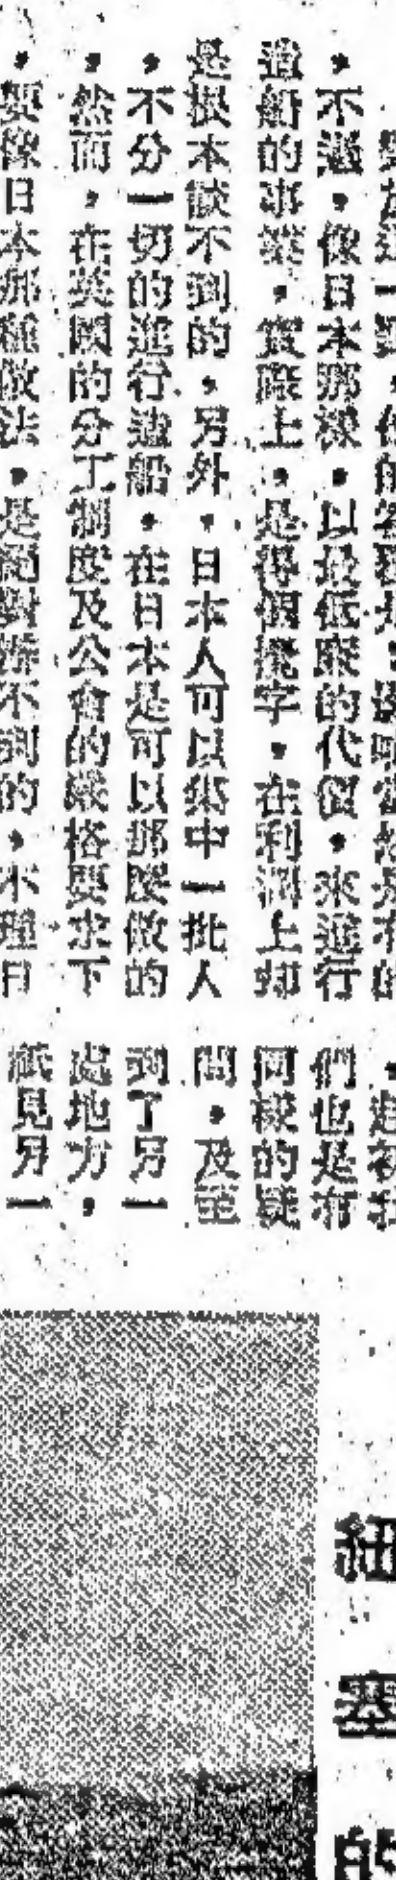 對於這一點，他的答覆是：技術當然是有的
，不過，像日本那樣，以最低廉的代價，來進行
造船的事業，實際上，是得個虧字，在利潤上却
是根本談不到的，另外，日本人可以集中一批人
，不分一切的進行造船，在日本是可以那麼做的
，然而，在英國的分工制度及公會的嚴格要求下
，要像日本那種做法，是絕對辦不到的，不理日
，起初我
們也是有
同樣的疑
問，及至
到了另一
處地方，
祇見另一
紐
塞
的